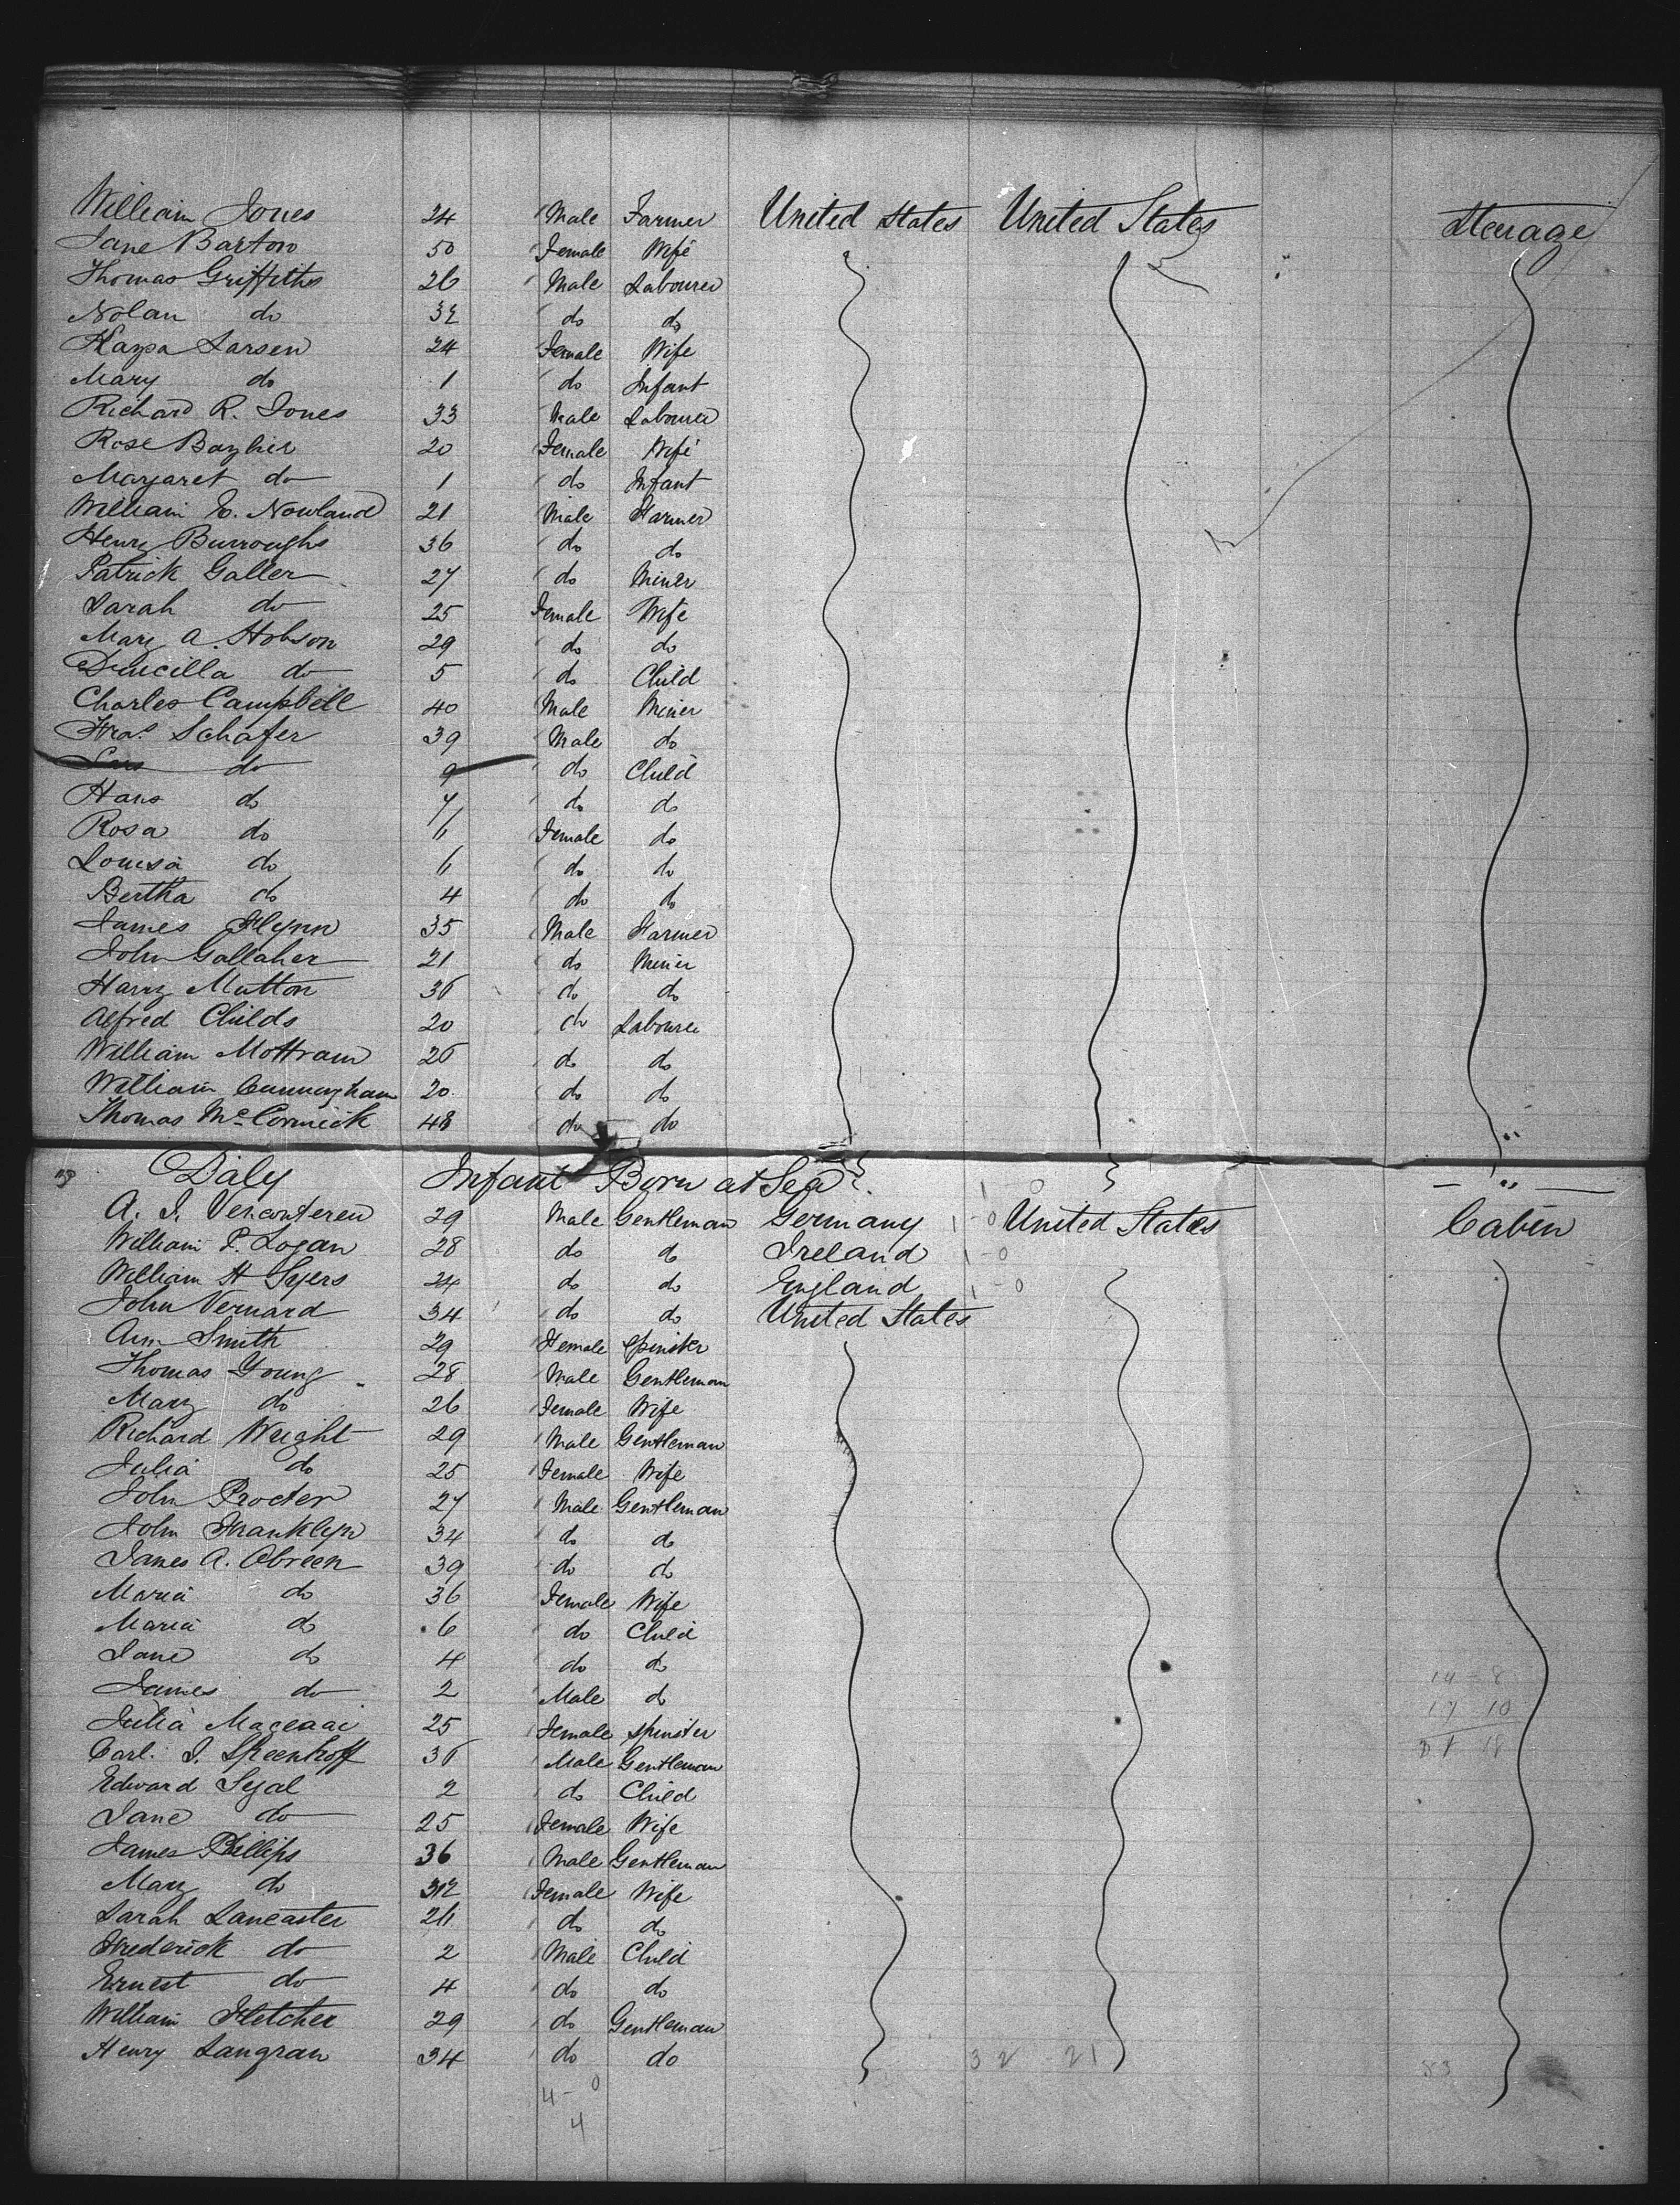 William Jones 24 Male Farmer United States United States Steerage
Jane Barton 50 Female Wife
Thomas Griffiths 26 Male Labourer
Nolan do 32 do do
Larsen 24 Female Wife
Mary do 1 do Infant
Richard R. Jones 33 Male Labourer
Rose 20 Female Wife
Margaret do 1 do Infant
William E. Nowland 21 Male Farmer
Henry Burroughs 36 do do
Patrick Galler 27 do Miner
Sarah do 25 Female Wife
Mary A. Hobson 29 do do
Drucilla do 5 do Child
Charles Campbell 40 Male Miner
Fras. Schafer 39 Male do
do 9 do Child
Hans do 7 do do
Rosa do 6 Female do
Louisa do 6 do do
Bertha do 4 do do
James Flynn 35 Male Farmer
John Gallaher 21 do Miner
Harry Mutton 36 do do
Alfred Childs 20 do Labourer
William Mottram 26 do do
William Cunningham 20 do do
Thomas McCormick 48 do do
Daly Infant Born at Sea
A. J. 29 Male Gentleman Germany 1-0 United States Cabin
William P. Logan 28 do do Ireland 1-0
William H Syers 24 do do England 1-0
John Vernard 34 do do United States
Ann Smith 29 Female Spinster
Thomas Young 28 Male Gentleman
Mary do 26 Female Wife
Richard Wright 29 Male Gentleman
Julia do 25 Female Wife
John Procter 27 Male Gentleman
John Franklyn 34 do do
James A. Obreen 39 do do
Maria do 36 Female Wife
Maria do 6 do Child
Jane do 4 do do
James do 2 Male do
Julia 25 Female Spinster
Carl. J. 36 Male Gentleman
Edward Segal 2 do Child
Jane do 25 Female Wife
James Phillips 36 Male Gentleman
Mary do Female Wife
Sarah Lancaster 26 do do
Frederick do 2 Male Child
Ernest do 4 do do
William Fletcher 29 do Gentleman
Henry Langran 34 do do 32-21 83
4-0
4